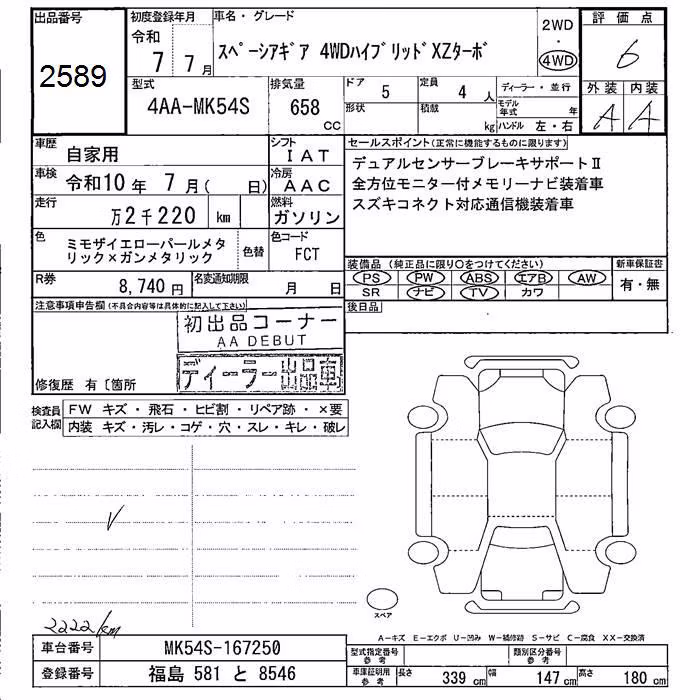 出品番号
2589
初度登録年月
令和
7 7月
車名・グレード
スペーシアギア 4WDハイブリッドXZターボ
2WD
・
4WD
評価点
6
外装 内装
A A
型式
4AA-MK54S
排気量
658
cc
ドア
5
形状
定員
4 人
積載
kg
ディーラー・並行
モデル年式 年
ハンドル 左・右
車歴
自家用
シフト
IAT
車検
令和10年 7月( 日)
冷房
AAC
走行
万2千220 km
燃料
ガソリン
色
ミモザイエローパールメタ
リック×ガンメタリック
色替
色コード
FCT
R券
8,740円
名変通知期限
月 日
セールスポイント(正常に機能するものに限ります)
デュアルセンサーブレーキサポートⅡ
全方位モニター付メモリーナビ装着車
スズキコネクト対応通信機装着車
装備品 (純正品に限り○をつけてください)
PS PW ABS エアB AW
SR ナビ TV カワ
新車保証書
有・無
後日品
注意事項申告欄(不具合内容等は具体的に記入して下さい)
初出品コーナー
AA DEBUT
ディーラー出品車
修復歴 有〔箇所
検査員
記入欄
FW キズ・飛石・ヒビ割・リペア跡・×要
内装 キズ・汚レ・コゲ・穴・スレ・キレ・破レ
V
2222/km
スペア
A－キズ E－エクボ U－凹み W－補修跡 S－サビ C－腐食 XX－交換済
車台番号
MK54S-167250
登録番号
福島 581 と 8546
型式指定番号
参考
類別区分番号
参考
車庫証明用
参考
長さ 339 cm 幅 147 cm 高さ 180 cm